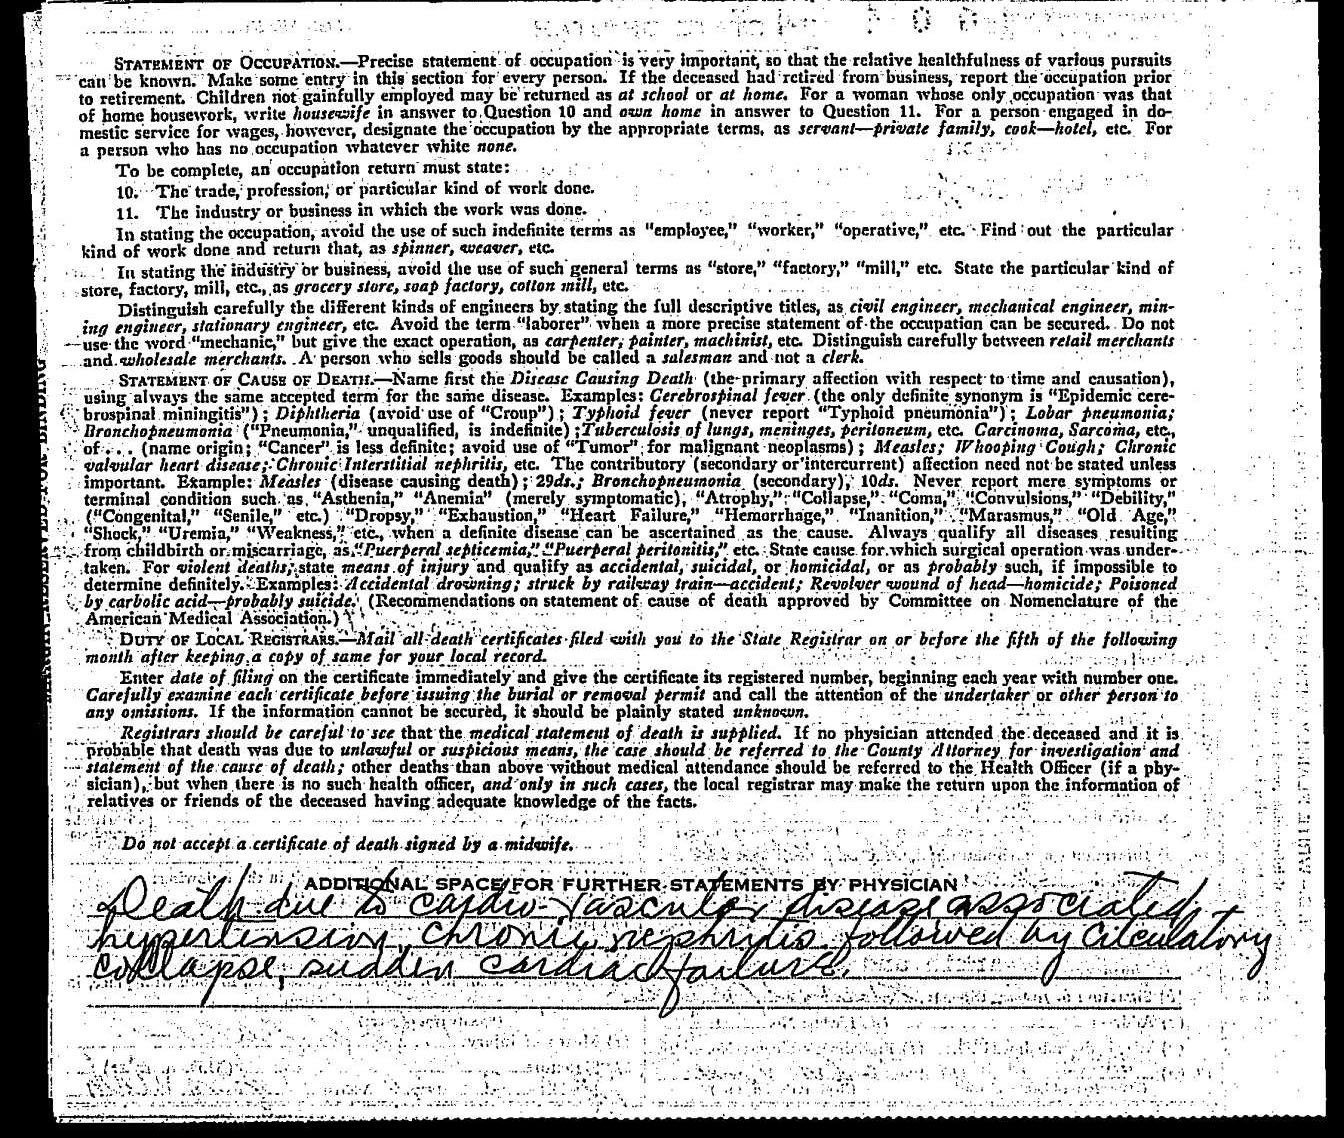 STATEMENT OF OCCUPATION.—Precise statement of occupation is very important, so that the relative healthfulness of various pursuits
can be known. Make some entry in this section for every person. If the deceased had retired from business, report the occupation prior
to retirement. Children not gainfully employed may be returned as at school or at home. For a woman whose only occupation was that
of home housework, write housewife in answer to Question 10 and own home in answer to Question 11. For a person engaged in do-
mestic service for wages, however, designate the occupation by the appropriate terms, as servant—private family, cook—hotel, etc. For
a person who has no occupation whatever white none.
To be complete, an occupation return must state:
10. The trade, profession, or particular kind of work done.
11. The industry or business in which the work was done.
In stating the occupation, avoid the use of such indefinite terms as "employee," "worker," "operative," etc. Find out the particular
kind of work done and return that, as spinner, weaver, etc.
In stating the industry or business, avoid the use of such general terms as "store," "factory," "mill," etc. State the particular kind of
store, factory, mill, etc., as grocery store, soap factory, cotton mill, etc.
Distinguish carefully the different kinds of engineers by stating the full descriptive titles, as civil engineer, mechanical engineer, min-
ing engineer, stationary engineer, etc. Avoid the term "laborer" when a more precise statement of the occupation can be secured. Do not
use the word "mechanic," but give the exact operation, as carpenter, painter, machinist, etc. Distinguish carefully between retail merchants
and wholesale merchants. A person who sells goods should be called a salesman and not a clerk.
STATEMENT OF CAUSE OF DEATH.—Name first the Disease Causing Death (the primary affection with respect to time and causation),
using always the same accepted term for the same disease. Examples: Cerebrospinal fever (the only definite synonym is "Epidemic cere-
brospinal miningitis"); Diphtheria (avoid use of "Croup"); Typhoid fever (never report "Typhoid pneumonia"); Lobar pneumonia;
Bronchopneumonia ("Pneumonia," unqualified, is indefinite); Tuberculosis of lungs, meninges, peritoneum, etc. Carcinoma, Sarcoma, etc.,
of . . . (name origin; "Cancer" is less definite; avoid use of "Tumor" for malignant neoplasms); Measles; Whooping Cough; Chronic
valvular heart disease; Chronic Interstitial nephritis, etc. The contributory (secondary or intercurrent) affection need not be stated unless
important. Example: Measles (disease causing death); 29ds.; Bronchopneumonia (secondary), 10ds. Never report mere symptoms or
terminal condition such as "Asthenia," "Anemia" (merely symptomatic), "Atrophy," "Collapse," "Coma," "Convulsions," "Debility,"
("Congenital," "Senile," etc.) "Dropsy," "Exhaustion," "Heart Failure," "Hemorrhage," "Inanition," "Marasmus," "Old Age,"
"Shock," "Uremia," "Weakness," etc., when a definite disease can be ascertained as the cause. Always qualify all diseases resulting
from childbirth or miscarriage, as "Puerperal septicemia," "Puerperal peritonitis," etc. State cause for which surgical operation was under-
taken. For violent deaths, state means of injury and qualify as accidental, suicidal, or homicidal, or as probably such, if impossible to
determine definitely. Examples: Accidental drowning; struck by railway train—accident; Revolver wound of head—homicide; Poisoned
by carbolic acid—probably suicide. (Recommendations on statement of cause of death approved by Committee on Nomenclature of the
American Medical Association.)
DUTY OF LOCAL REGISTRARS.—Mail all death certificates filed with you to the State Registrar on or before the fifth of the following
month after keeping a copy of same for your local record.
Enter date of filing on the certificate immediately and give the certificate its registered number, beginning each year with number one.
Carefully examine each certificate before issuing the burial or removal permit and call the attention of the undertaker or other person to
any omissions. If the information cannot be secured, it should be plainly stated unknown.
Registrars should be careful to see that the medical statement of death is supplied. If no physician attended the deceased and it is
probable that death was due to unlawful or suspicious means, the case should be referred to the County Attorney for investigation and
statement of the cause of death; other deaths than above without medical attendance should be referred to the Health Officer (if a phy-
sician), but when there is no such health officer, and only in such cases, the local registrar may make the return upon the information of
relatives or friends of the deceased having adequate knowledge of the facts.
Do not accept a certificate of death signed by a midwife.
ADDITIONAL SPACE FOR FURTHER STATEMENTS BY PHYSICIAN
Death due to cardio-vascular disease associated,
hypertension, chronic nephritis followed by circulatory
collapse, sudden cardiac failure.